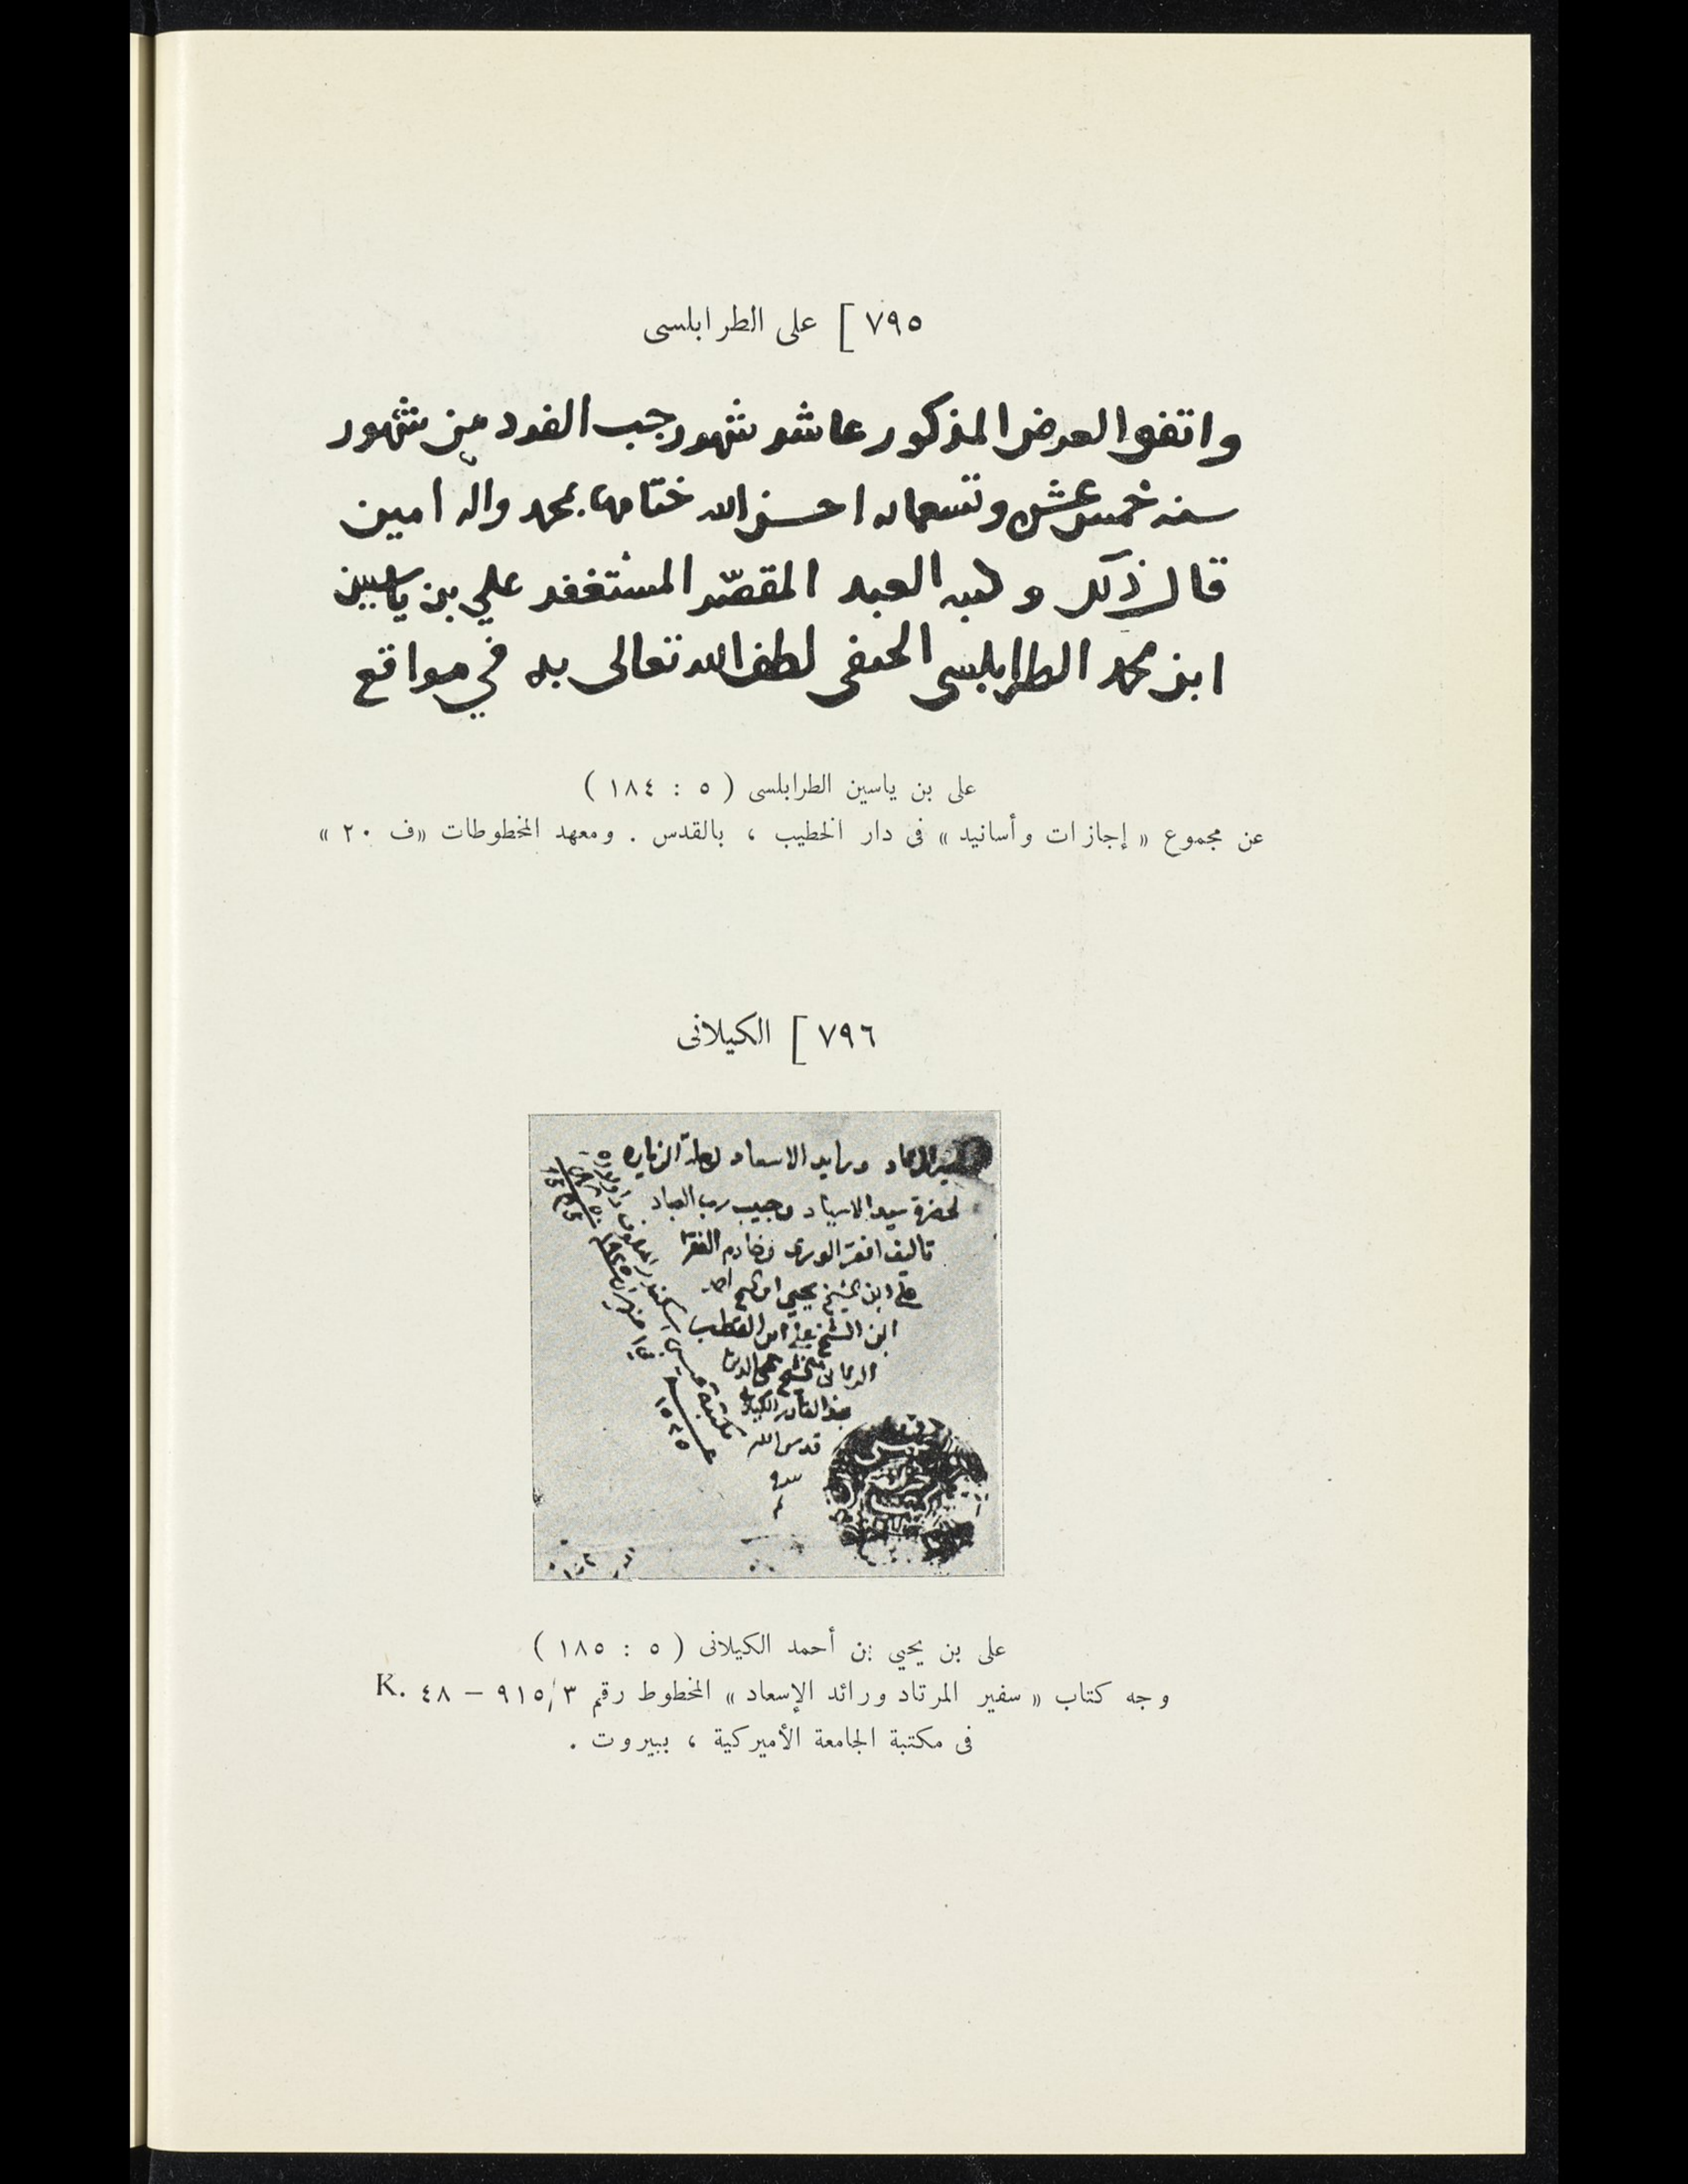 ٧٩٥ [ على الطرابلسى
واتفق العرض المذكور عاشر شهر رجب الفرد من شهور
سنه خمس عشر وتسعمايه احسن الله ختامها بمحمد واله امين
قال ذلك وكتبه العبد المقصّر المستغفر علي بن ياسين
ابن محمد الطرابلسي الحنفى لطف الله تعالى به في مواقع
على بن ياسين الطرابلسى ( ٥ : ١٨٤ )
عن مجموع « إجازات وأسانيد » فى دار الخطيب ، بالقدس . ومعهد المخطوطات «ف ٢٠ »
٧٩٦ [ الكيلانى
ورايد الاسعاد الزياره
لحضرة سيد الاسياد وحبيب رب العباد
تاليف افقر الورى وخادم الفقرا
علي ابن الشيخ يحيى ابن الشيخ احمد
ابن الشيخ علي ابن القطب
الرباني الشيخ محي الدين
عبد القادر الكيلاني
قدس الله
سره
مكتبة عيسى اسكندر المعلوف
على بن يحيي بن أحمد الكيلانى ( ٥ : ١٨٥ )
وجه كتاب « سفير المرتاد ورائد الإسعاد » المخطوط رقم ٩١٥/٣ – ٤٨ .K
فى مكتبة الجامعة الأميركية ، ببيروت .